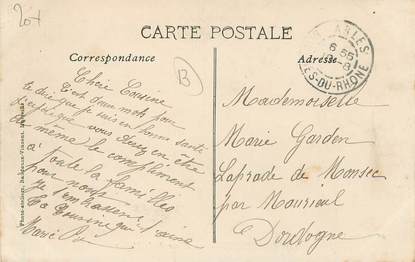 20f
CARTE POSTALE
Correspondance
Adresse
B
ARLES
6 55
BES-DU-RHÔNE
Chère Cousine
C'est deux mots pour
te dire que je suis en bonne santé
j'espère que vous serez en être
de même le compliment
à toute la familles
pour nous
je t'embrasse
Ta Cousine qui t'aime
Marie
Mademoiselle
Marie Garden
Laprade de Mansec
par Mourieul
Dordogne